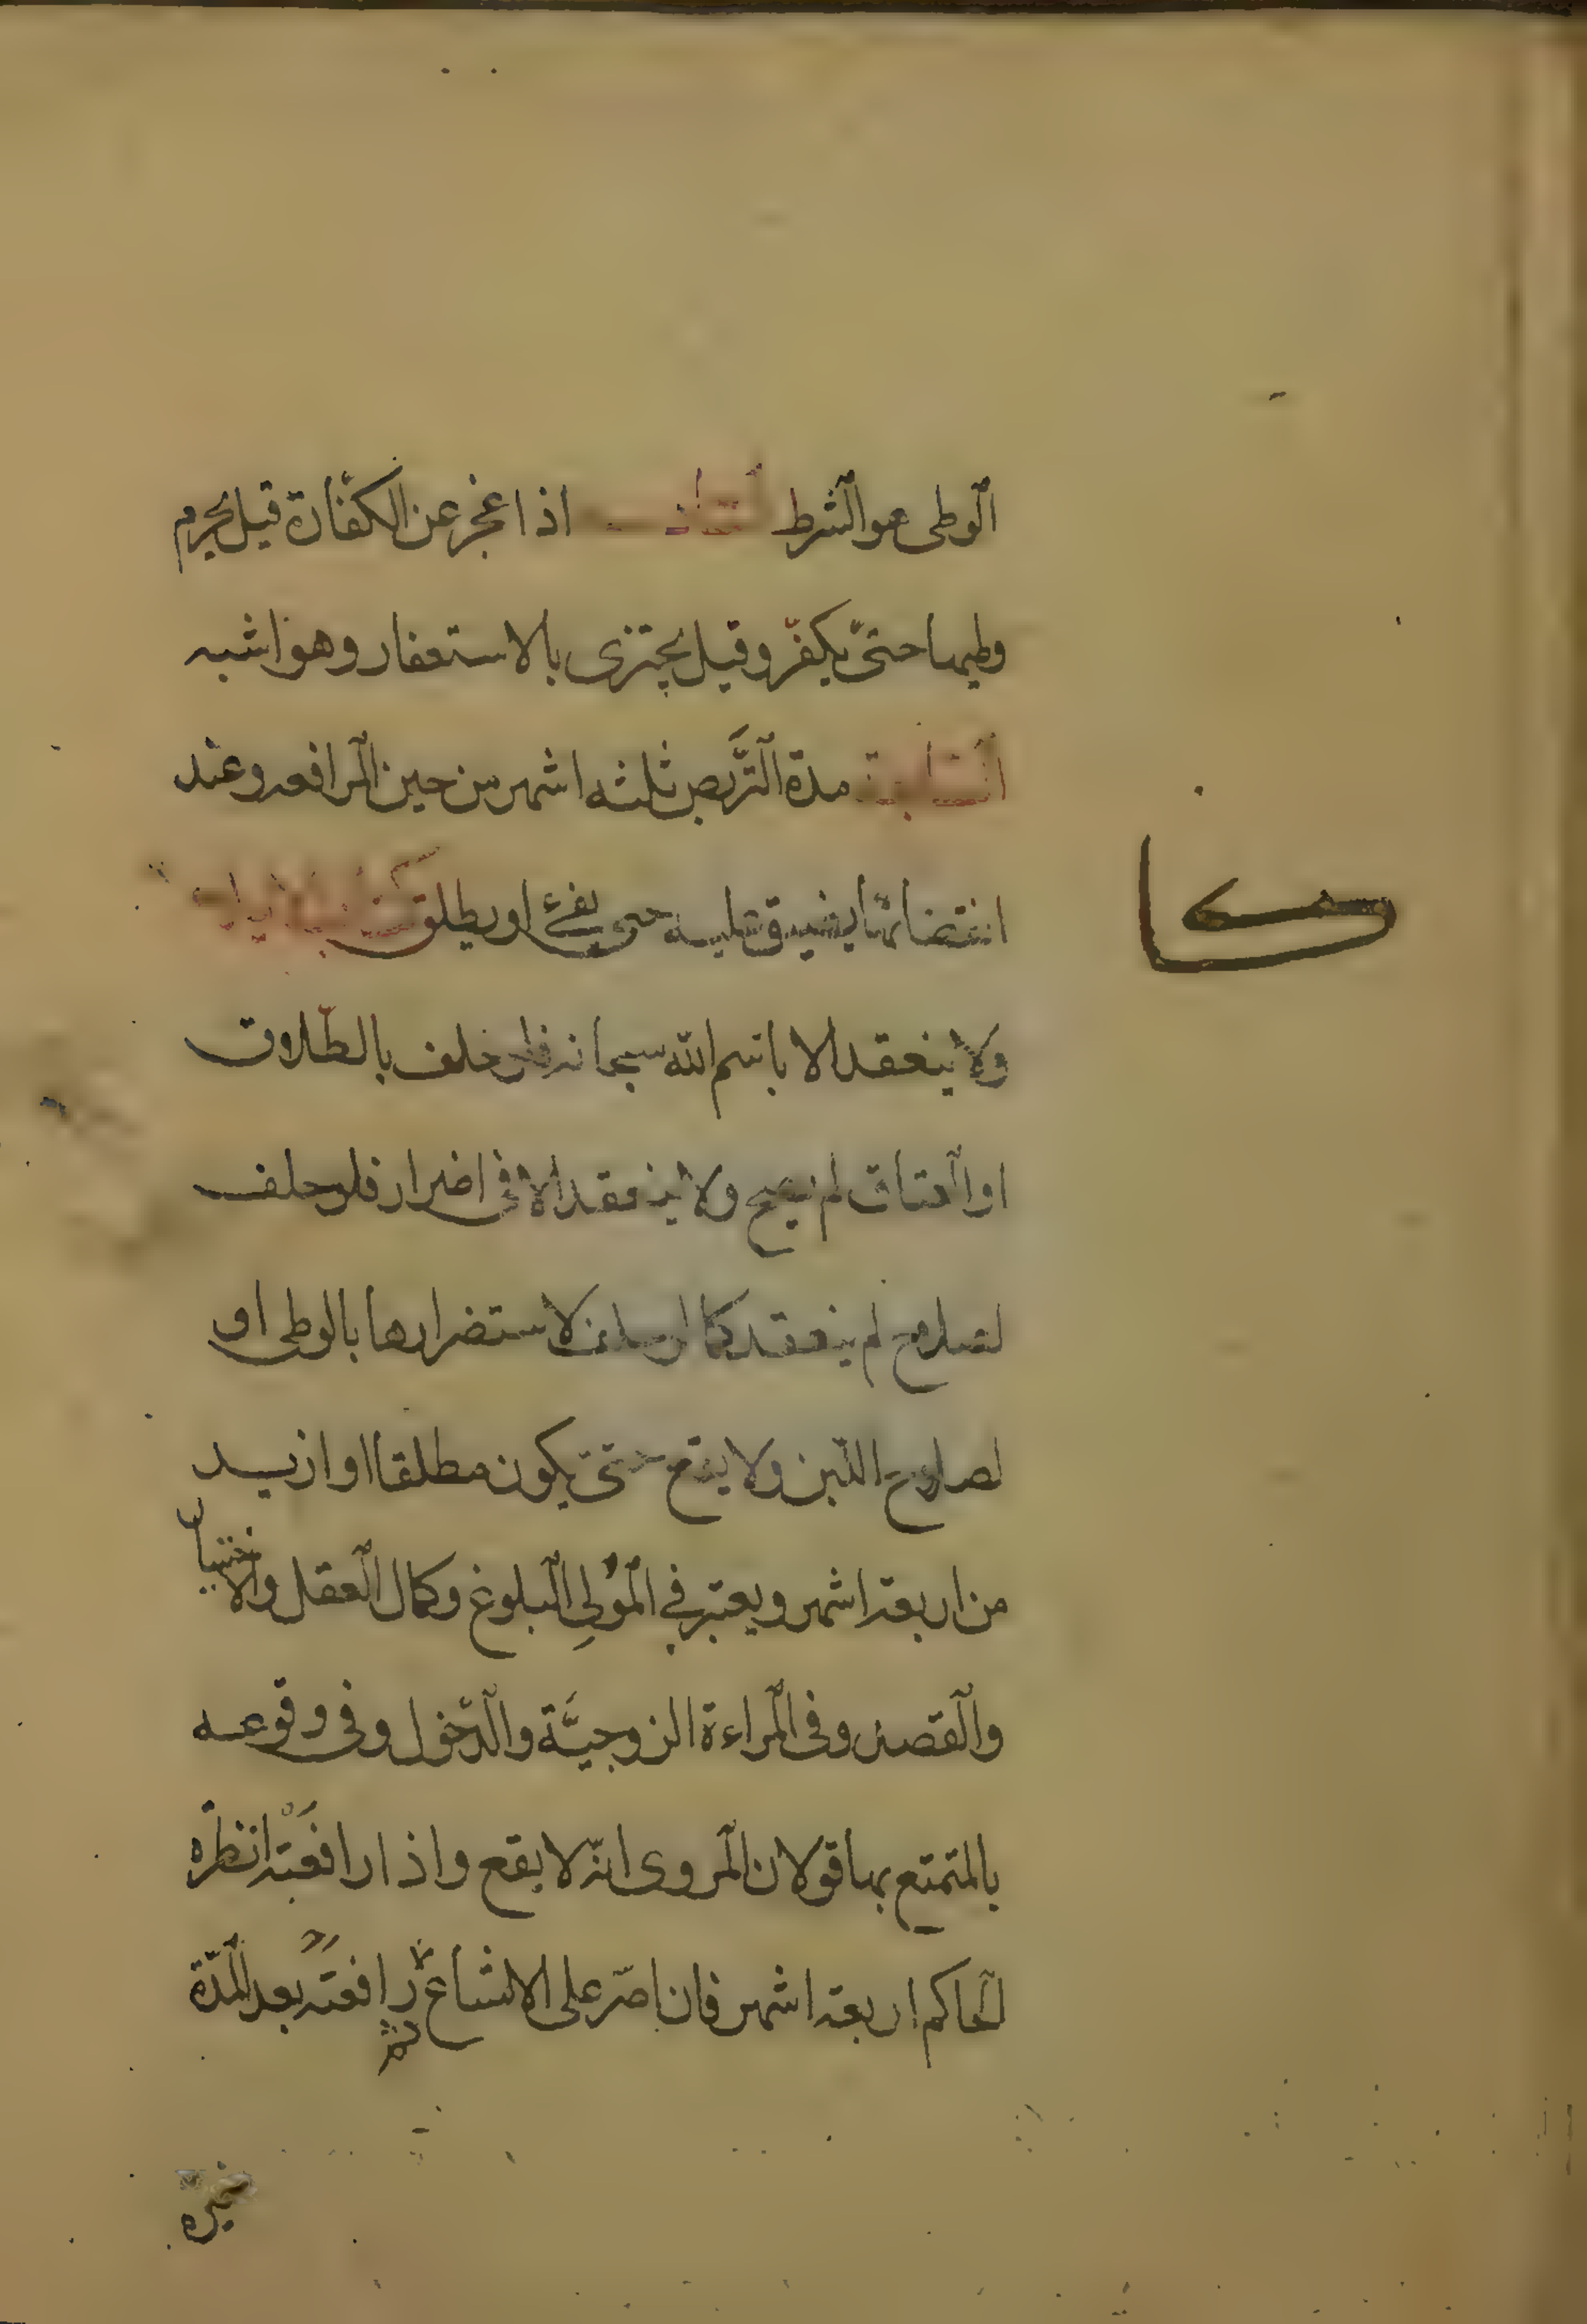 الوطى هو الشرط السادسة اذا عجز عن الكفّارة قيل يحرم
وطيها حتىّ يكفّر وقيل يجتزى بالاستغفار وهو اشبه
السابعة مدة التَّربص ثلثه اشهر من حين المرافعه وعند
انقضائها يضيق عليه حتى يفئ او يطلق كتاب الايلاء
ولا ينعقد الا باسم الله سبحانه فلو حلف بالطّلاق
او العتاق لم يصح ولا ينعقد الا فى اضرار فلو حلف
لصلاح لم ينعقد كما لو حلف لاستضرارها بالوطى او
لصلاح اللبن ولا يقع حتىّ يكون مطلقا او ازيد
من اربعة اشهر ويعتبر في المُولِى البلوغ وكمال العقل والاختيار
والقصد وفى المراءة الزوجيَّة والدّخول وفى وقوعه
بالمتمتع بها قولان المروى انّه لا يقع واذا رافعَتْه انظره
الحاكم اربعة اشهر فان اصرّ على الامتناع ثم رافعته بعد المدّة
خيره